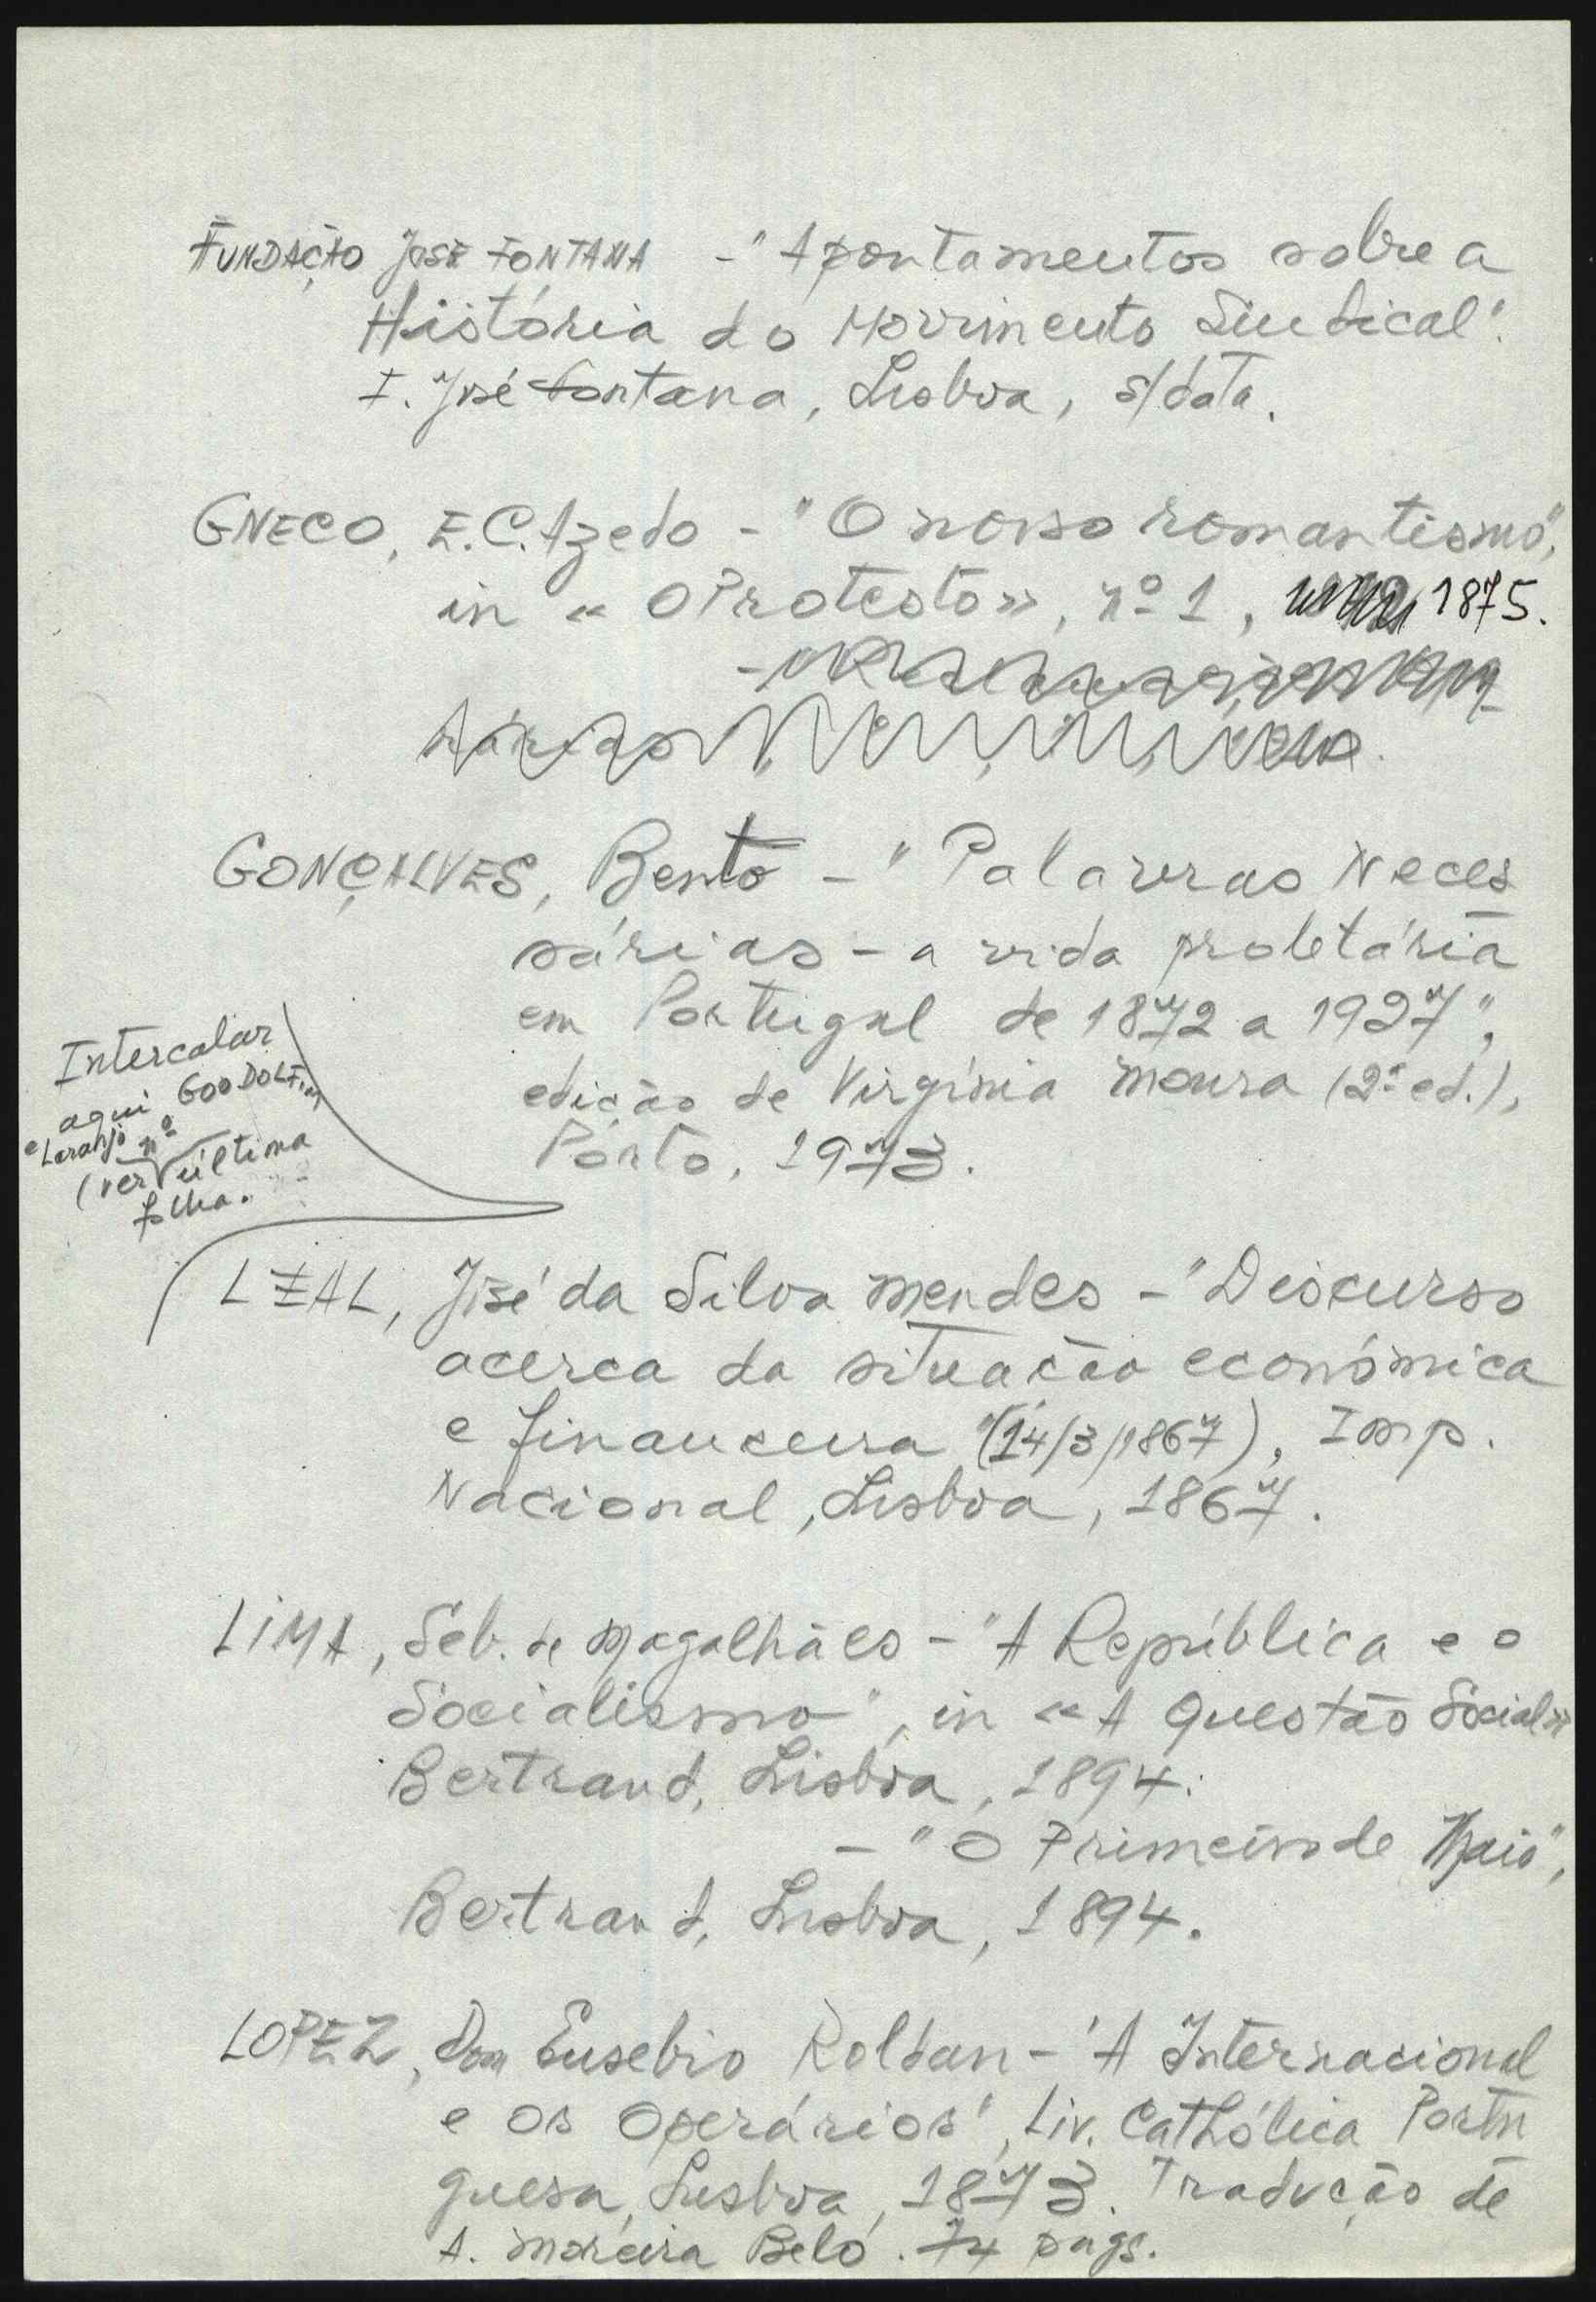 FUNDAÇÃO JOSÉ FONTANA - "Apontamentos sobre a
História do Movimento Sindical".
F. José Fontana, Lisboa, s/data.
GNECO, E.C. Azedo - "O nosso romantismo",
in «O Protesto», nº 1, 1875.
GONÇALVES, Bento - "Palavras Neces
sárias - a vida proletária
em Portugal de 1872 a 1927",
edição de Virgínia Moura (2ª ed.),
Pôrto, 1973.
Intercalar
aqui GOODOLFIM
e Laranjo nº
(ver última
folha.
LEAL, José da Silva Mendes - "Discurso
acerca da situação económica
e financeira" (14/3/1867), Imp.
Nacional, Lisboa, 1867.
LIMA, Seb. de Magalhães - "A República e o
Socialismo", in «A Questão Social»
Bertrand, Lisboa, 1894.
- "O Primeiro de Maio",
Bertrand, Lisboa, 1894.
LOPEZ, Dom Eusebio Roldan - "A Internacional
e os Operários", Liv. Cathólica Portu
guesa, Lisboa, 1873. Tradução de
A. Moreira Belo. 74 pags.